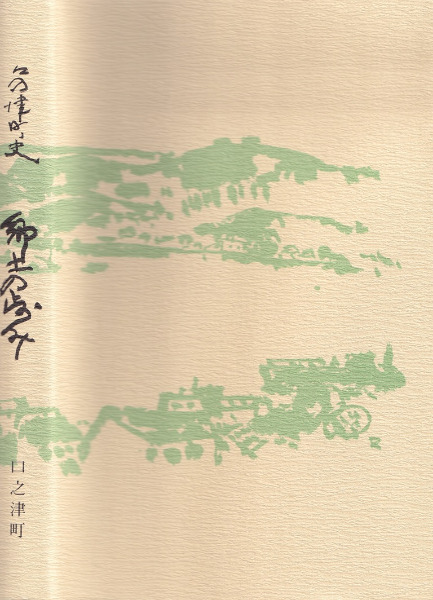 口の津町史
郷土の歩み
口之津町